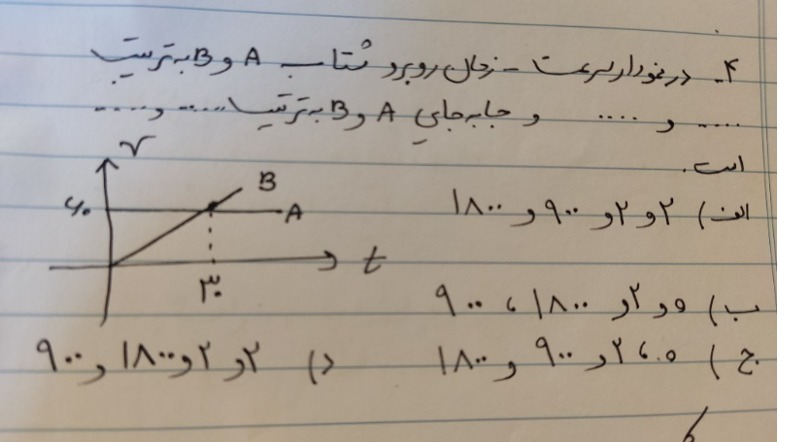 ۴- در نمودار سرعت - زمان روبرو شتاب A و B به ترتیب
..... و .... و جابه‌جایی A و B به ترتیب ..... و .....
است.
v
B
۶۰
A
t
۳۰
الف) ۲ و ۲ و ۹۰۰ و ۱۸۰۰
ب) ۰ و ۲ و ۱۸۰۰ ، ۹۰۰
ج) ۰ ، ۲ و ۹۰۰ و ۱۸۰۰
د) ۲ و ۲ و ۱۸۰۰ و ۹۰۰